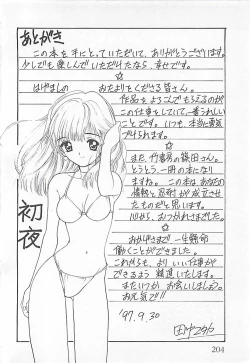 あとがき
この本を手にとっていただいて、ありがとうございます。
少しでも楽しんでいただけたなら、幸せです。
☆
はげましの おたよりをくださる皆さん。
作品をよろこんでもらえるのが
この仕事をしていて、一番うれしい
ことです。いつも、本当に勇気
づけられます。
☆
また、竹書房の篠田さん。
とうとう、一冊の本になり
ますね。この本はあなたの
情熱と忍耐が成立させ
たものだと思います。
心から、おつかれさまでした。
☆
おかげさまで 一生懸命
働くことができました。
これからも、よりいい仕事が
できるよう 精進いたします。
またいつか お会いしましょう。
お元気で!!
'97.9.30
初夜
204